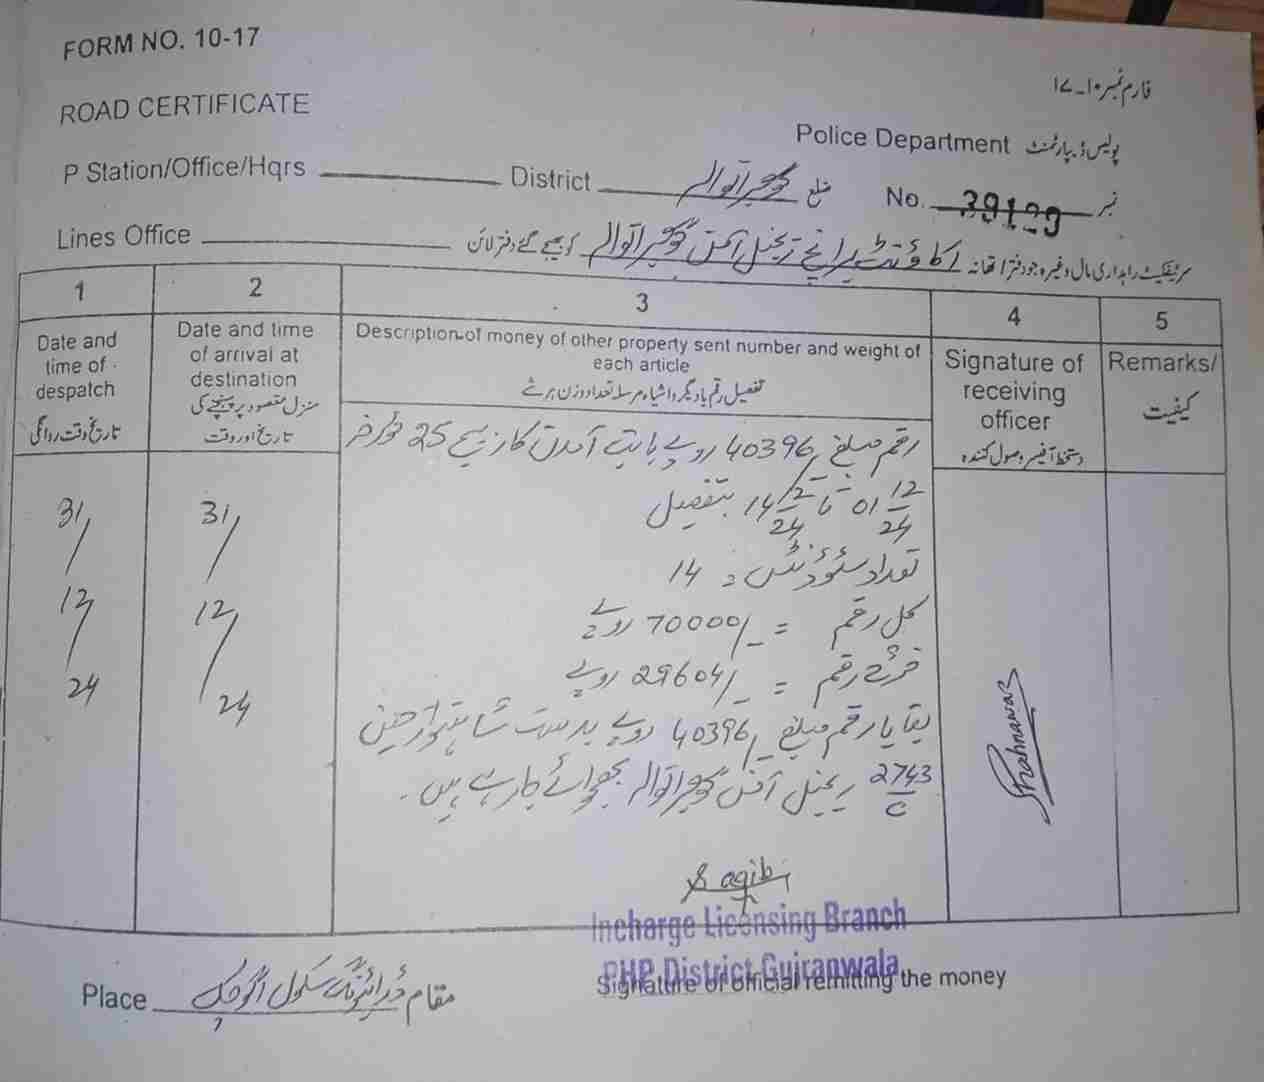 FORM NO. 10-17
فارم نمبر ۱۰-۱۷
ROAD CERTIFICATE
Police Department پولیس ڈیپارٹمنٹ
P Station/Office/Hqrs District گوجرانوالہ ضلع No. 39129 نمبر
Lines Office
سرٹیفکیٹ راہداری مال وغیرہ جو دفتر/تھانہ اکاؤنٹ برانچ ریجنل آفس گوجرانوالہ کو بھیجے گئے دفتر لائن
1 2 3 4 5
Date and time of despatch
تاریخ وقت روانگی
Date and time of arrival at destination
منزل مقصود پر پہنچنے کی
تاریخ اور وقت
Description of money of other property sent number and weight of
each article
تفصیل رقم یا دیگر اشیاء مرسلہ تعداد وزن ہر شے
Signature of
receiving
officer
دستخط آفیسر وصول کنندہ
Remarks/
کیفیت
31/12/24
31/12/24
رقم مبلغ 40396/- روپے بابت آمدن کار
01 12/24 تا 14 12/24 بتفصیل
تعداد سٹوڈنٹس = 14
کل رقم = 70000/- روپے
خرچ رقم = 29604/- روپے
بقایا رقم مبلغ 40396/- روپے بدست
2743/C ریجنل آفس گوجرانوالہ بھجوائے جا رہے ہیں۔
Shahnawaz
Saqib
Incharge Licensing Branch
PHP District Gujranwala
Signature of official remitting the money
Place مقام ڈرائیونگ سکول